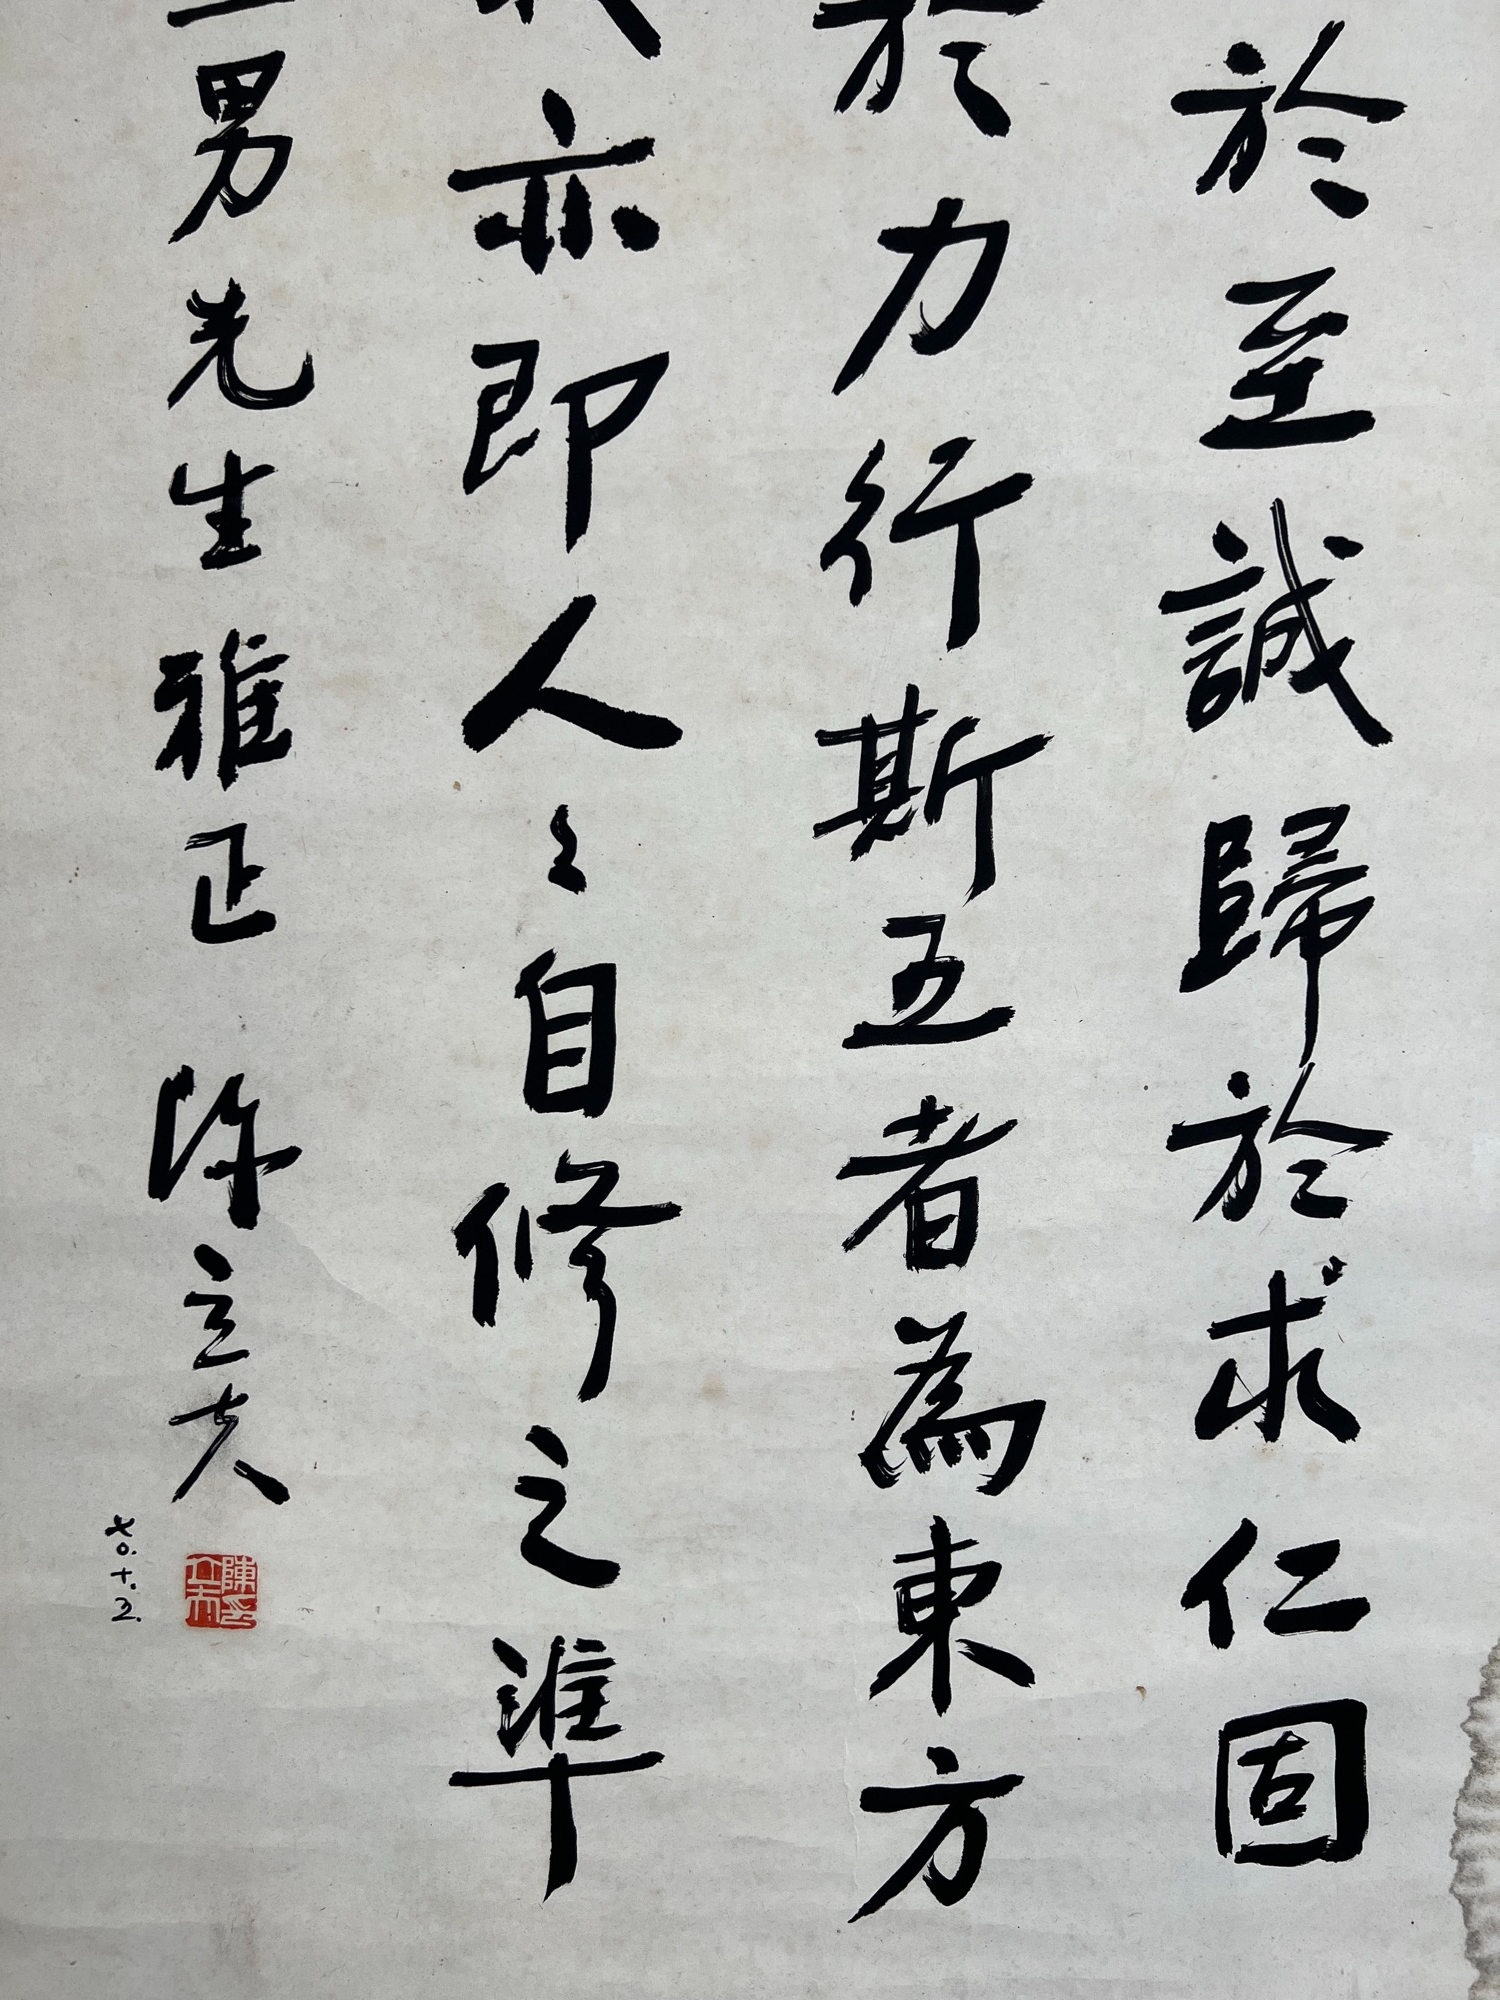 於至誠歸於求仁固
於力行斯五者為東方
亦即人々自修之準
男先生雅正 陳立夫
七〇.十.五.
陳立夫印